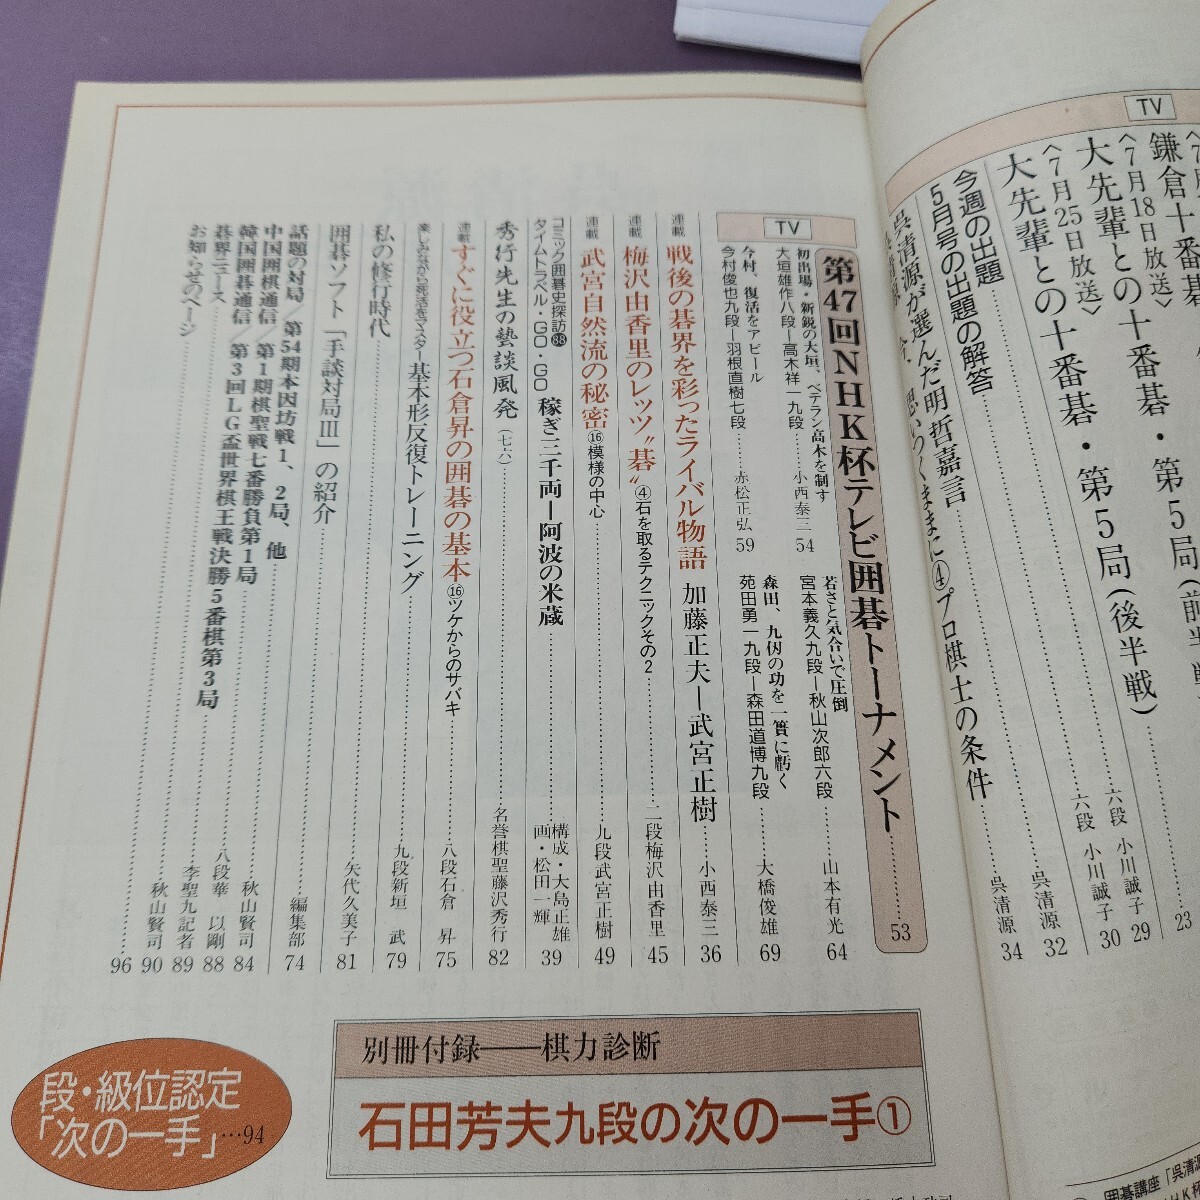 TV
鎌倉十番碁
〈7月18日放送〉
大先輩との十番碁・第5局(前半戦
六段 小川誠子 29
〈7月25日放送〉
大先輩との十番碁・第5局(後半戦)
六段 小川誠子 30
23
今週の出題
5月号の出題の解答
呉清源 32
呉清源が選んだ明哲嘉言
④プロ棋士の条件
呉清源 34
TV
第47回NHK杯テレビ囲碁トーナメント 53
初出場・新鋭の大垣、ベテラン高木を制す
大垣雄作八段―高木祥一九段 小西泰三 54
若さと気合いで圧倒
宮本義久九段―秋山次郎六段 山本有光 64
今村、復活をアピール
今村俊也九段―羽根直樹七段 赤松正弘 59
森田、九仞の功を一簣に虧く
苑田勇一九段―森田道博九段 大橋俊雄 69
連載 戦後の碁界を彩ったライバル物語 加藤正夫―武宮正樹 小西泰三 36
連載 梅沢由香里のレッツ〝碁〟④石を取るテクニックその2 二段梅沢由香里 45
連載 武宮自然流の秘密⑯模様の中心 九段武宮正樹 49
コミック囲碁史探訪88
タイムトラベル・GO・GO 稼ぎ三千両―阿波の米蔵
構成・大島正雄
画・松田一輝 39
秀行先生の藝談風発(七六) 名誉棋聖藤沢秀行 82
連載 すぐに役立つ石倉昇の囲碁の基本⑯ツケからのサバキ 八段石倉 昇 75
楽しみながら死活をマスター 基本形反復トレーニング 九段新垣 武 79
私の修行時代 矢代久美子 81
囲碁ソフト「手談対局III」の紹介 編集部 74
話題の対局/第54期本因坊戦1、2局、他 秋山賢司 84
中国囲棋通信/第1期棋聖戦七番勝負第1局 八段華 以剛 88
韓国囲碁通信/第3回LG盃世界棋王戦決勝5番棋第3局 李聖九記者 89
碁界ニュース 秋山賢司 90
お知らせのページ 96
別冊付録――棋力診断
石田芳夫九段の次の一手①
段・級位認定
「次の一手」…94
囲碁講座「呉清源